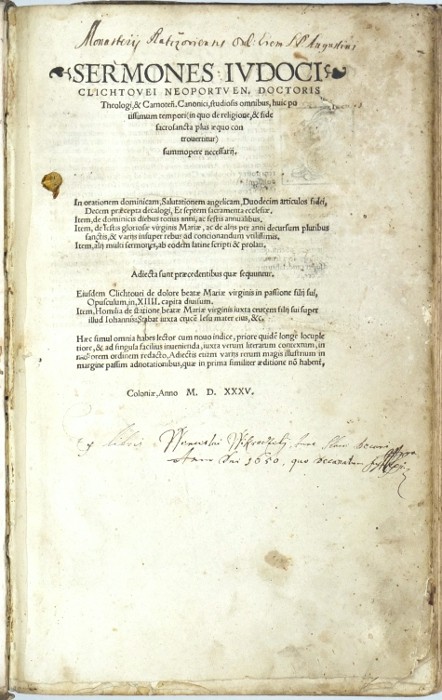 Monasterij Ord: Erem: S. P. Augustini
SERMONES IVDOCI
CLICHTOVEI NEOPORTVEN. DOCTORIS
Theologi, & Carnoteñ. Canonici, studiosis omnibus, huic po
tissimum tempori (in quo de religione, & fide
sacrosancta plus æquo con
trovertitur)
summopere necessarij.
In orationem dominicam, Salutationem angelicam, Duodecim articulos fidei,
Decem præcepta decalogi, Et septem sacramenta ecclesiæ.
Item, de dominicis diebus totius anni, ac festis annualibus.
Item, de festis gloriosæ virginis Mariæ, ac de alijs per anni decursum pluribus
sanctis, & varijs insuper rebus ad concionandum vtilissimis.
Item, alij multi sermones, ab eodem latine scripti & prolati.
Adiecta sunt præcedentibus quæ sequuntur.
Eiusdem Clichtouei de dolore beatæ Mariæ virginis in passione filij sui,
Opusculum, in XIIII. capita diuisum.
Item, Homilia de statione beatæ Mariæ virginis iuxta crucem filij sui super
illud Iohannis: Stabat iuxta crucē Iesu mater eius, &c.
Hæc simul omnia habes lector cum nouo indice, priore quidē longe locuple
tiore, & ad singula facilius inuenienda, iuxta verum literarum contextum, in
orem ordinem redacto, Adiectis etiam varijs rerum magis illustrium in
margine passim adnotationibus, quæ in prima similiter æditione nō habent̄,
Coloniæ, Anno M. D. XXXV.
Ex libris
Anno Dni 1650. quo